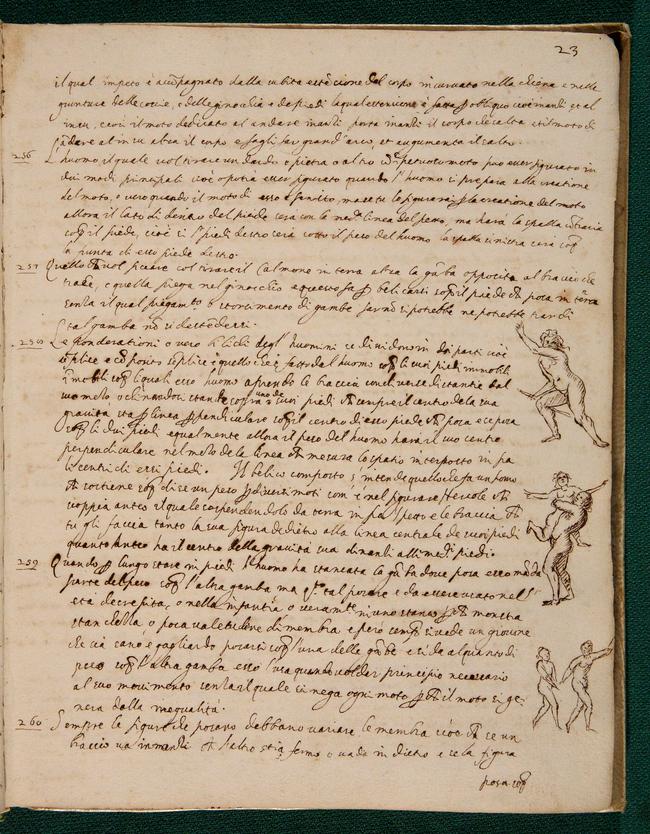 23
il qual impeto è accompagnato dalla subita estensione del corpo incurvato nella schiena e nelle
giunture delle coscie, e delle ginochia e da piedi la qual estensione è fatta obliquo cioè inanti et al
insu, così il moto dedicato al andare inanti porta inanti il corpo che salta et il moto di
andare al in su alza il corpo e fagli far grand'arco, et augumenta il salto.
256 L'huomo, il quale vol tirare un dardo o pietra o altro moto può esser figurato in
dui modi principali cioè o potra esser figurato quando l'huomo si prepara alla creatione
del moto, o vero quando il moto di esso è finito, ma se tu lo figurarai la creatione del moto
allora il lato di dentro del piede sera con la linea del petto, ma harà la spalla contraria
il piede, cioè se il piè destro serà sotto il peso del huomo la spalla sinistra sera
la punta di esso piede destro.
257 Quello vol ficcare col tirare il Calmone in terra alza la gamba opposita al braccio che
trahe, e quella piega nel ginocchio e questo fa belicarsi il piede posa in terra
senza il qual piegamento o storcimento di gambe far non si potrebbe ne potrebbe trar di
tal gamba non si destendessi.
258 Le ponderationi o vero bilichi degl huomini se dividono in doi parti cioè
semplice e composto semplice è quello che è fatto dal huomo li suoi piedi immobili
li quali esso huomo aprendo le braccia con diverse distantie dal
suo mezzo, o chinandosi stando un de suoi piedi sempre il centro de la sua
gravità sta linea perpendiculare il centro di esso piede posa e se posa
li dui piedi equalmente allora il peso del huomo harà il suo centro
perpendiculare nel mezo de la linea mesura lo spatio interposto in fra
li centri di essi piedi. Il belico composto s'intende quello che fa un homo
sostiene di se un peso diversi moti com è nel figurare Hercole
scoppia anteo il quale sospendendolo da terra in fra l petto e le braccia
tu gli faccia tanto la sua figura de dietro alla linea centrale de suoi piedi
quanto Anteo ha il centro della gravità sua dinanzi alli medi piedi.
259 Quando lungo stare in piedi l'huomo ha stancata la gamba dove posa esso manda
parte del peso l'altra gamba ma tal posare è da essere usato nel
età decrepita, o nella infantia o veramente in uno stanco monstra
stanchezza, o poca valetudine di membra e però sempre si vede un giovane
che sia sano e gagliardo posarsi l'una delle gambe e si da alquanto di
peso l'altra gamba esso l'usa quando vol dar principio necessario
al suo movimento senza il quale si nega ogni moto il moto si ge-
nera dalla inequalità.
260 Sempre le figure che posano debbano variare le membra cioè se un
braccio va inanzi l'altro stia fermo o vada in dietro e se la figura
posa